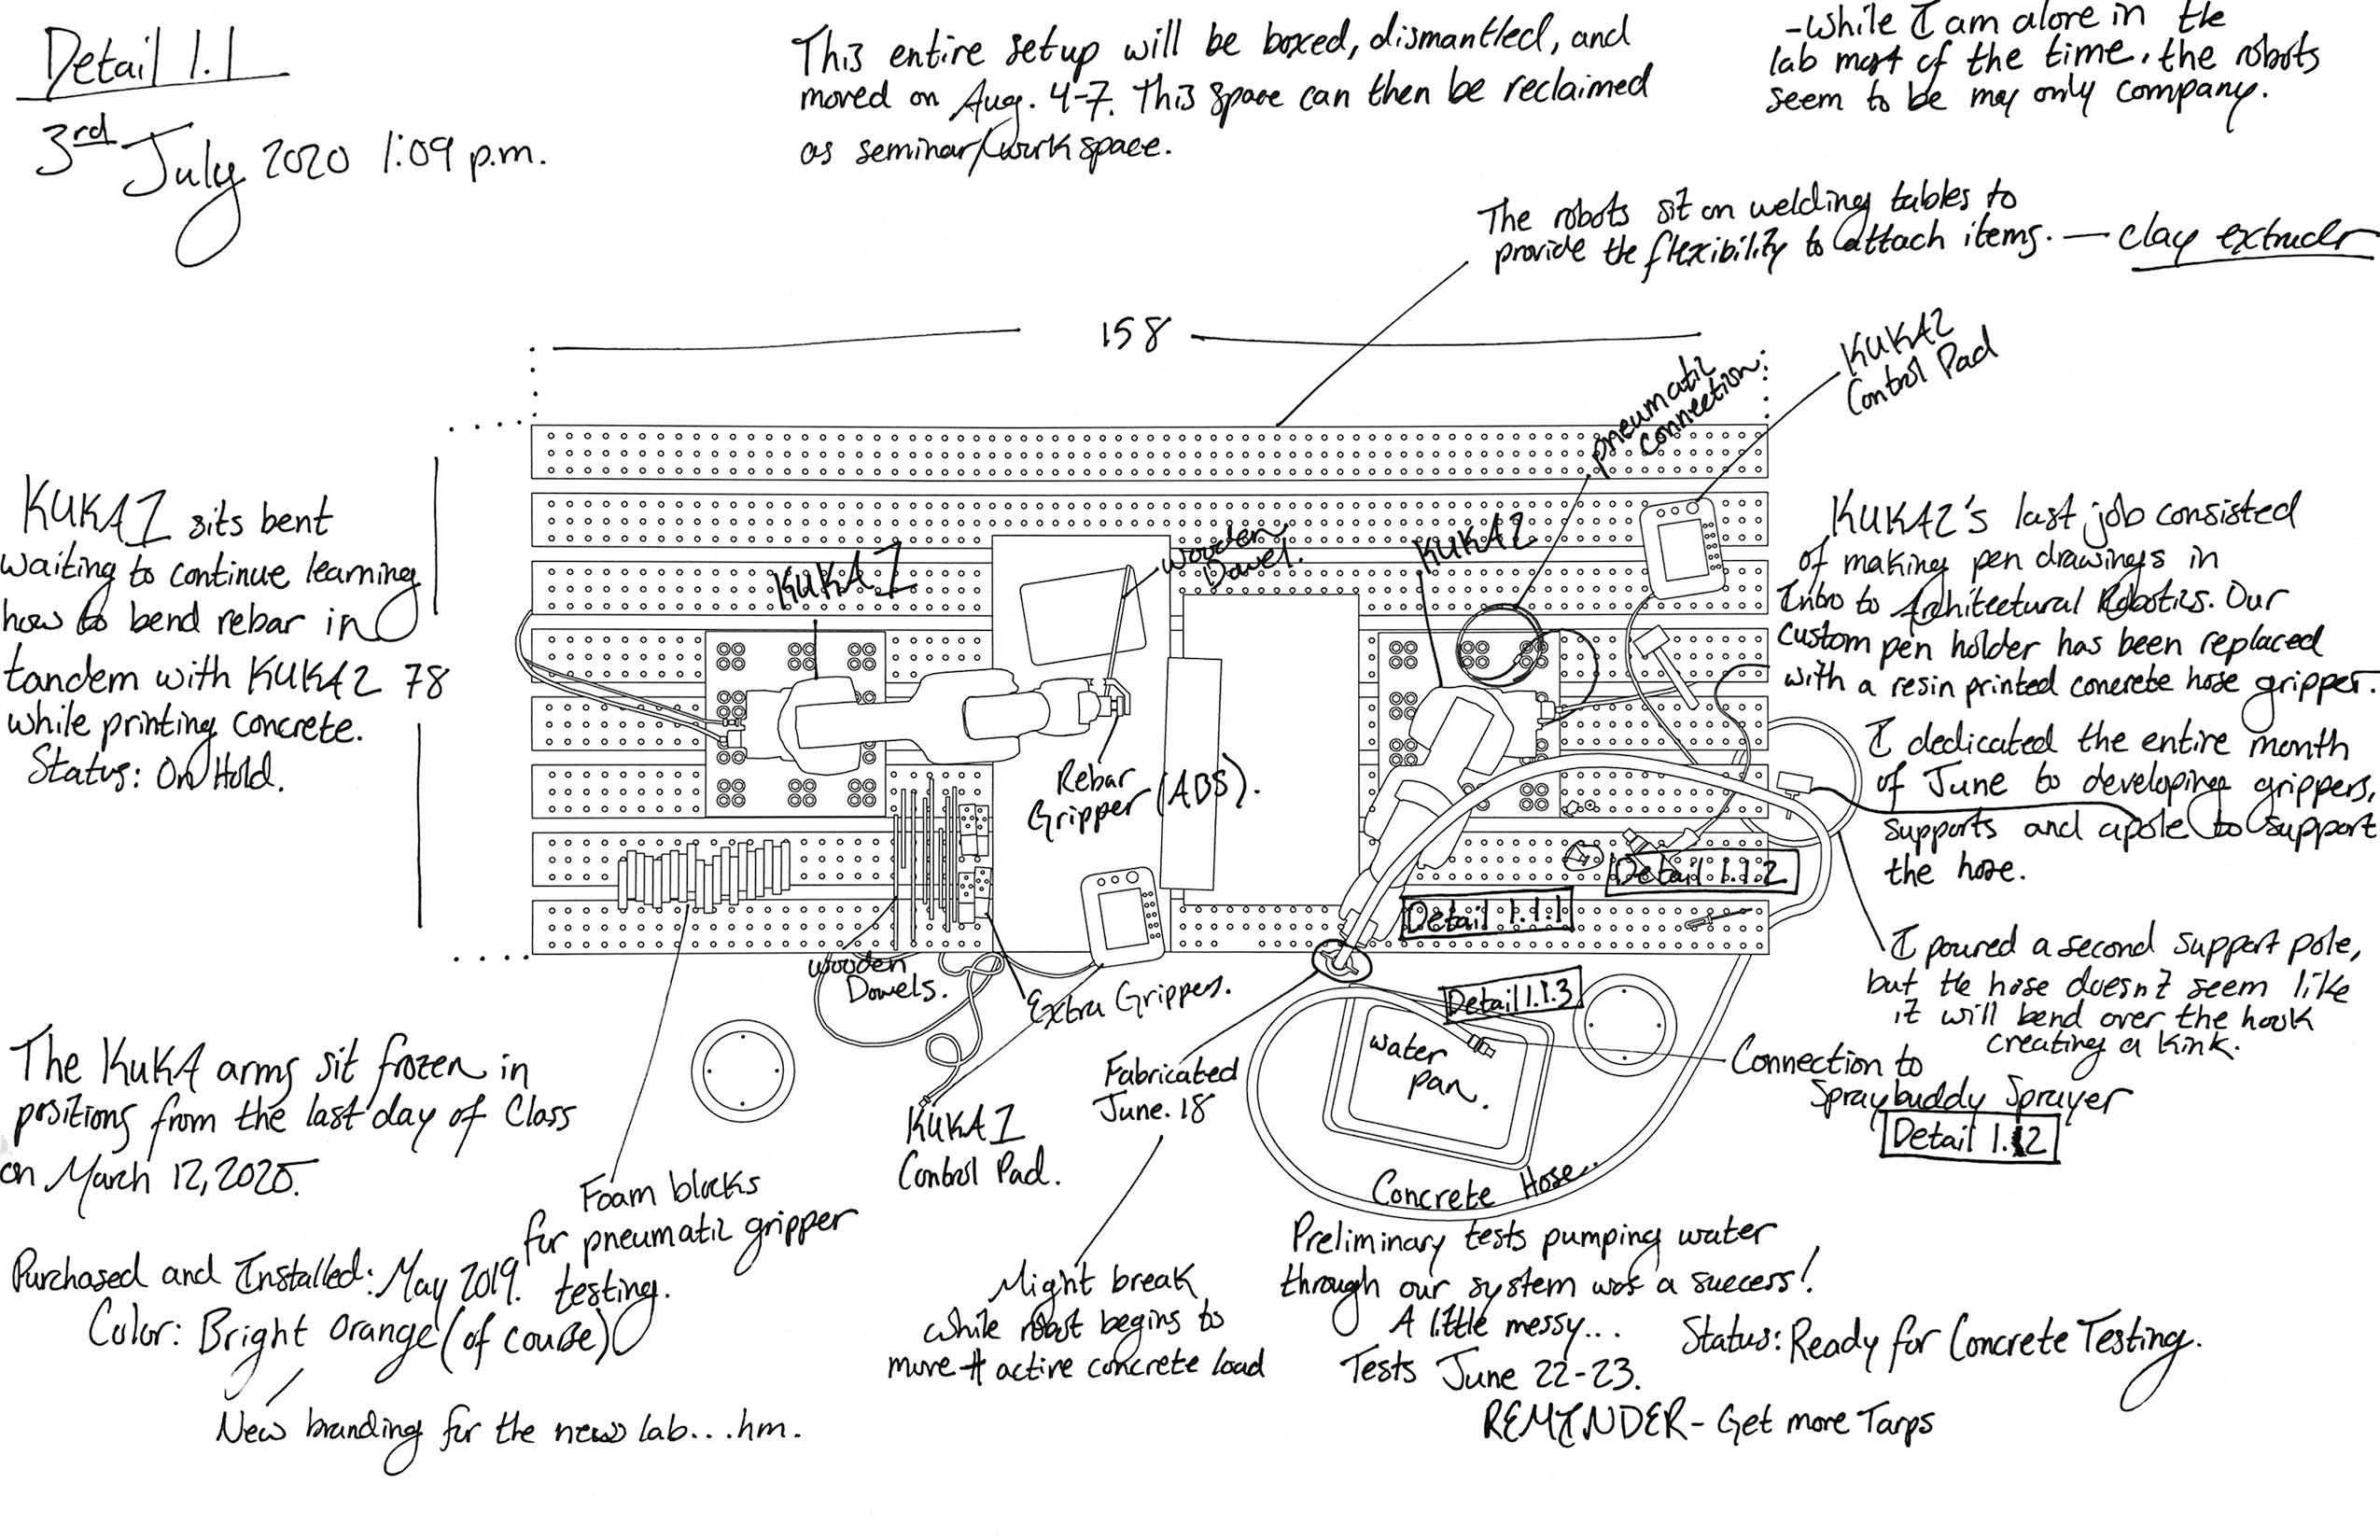 Detail 1.1
3rd July 2020 1:09 p.m.
This entire setup will be boxed, dismantled, and
moved on Aug. 4-7. This space can then be reclaimed
as seminar/work space.
-While I am alone in the
lab most of the time, the robots
seem to be my only company.
The robots sit on welding tables to
provide the flexibility to attach items. — clay extruder
158
KUKA2
Control Pad
pneumatic
connection:
KUKA 1 sits bent
waiting to continue learning
how to bend rebar in
tandem with KUKA2
while printing concrete.
Status: On Hold.
78
KUKA 1
Wooden
Dowel.
KUKA2
Rebar
Gripper (ABS).
KUKA2's last job consisted
of making pen drawings in
Intro to Architectural Robotics. Our
custom pen holder has been replaced
with a resin printed concrete hose gripper.
I dedicated the entire month
of June to developing grippers,
supports and a pole to support
the hose.
Detail 1.1.2
Detail 1.1.1
I poured a second support pole,
but the hose doesn't seem like
it will bend over the hook
creating a kink.
Wooden
Dowels.
Extra Grippers.
Detail 1.1.3
water
pan.
Connection to
Spraybuddy Sprayer
Detail 1.12
The KUKA arms sit frozen in
positions from the last day of Class
on March 12, 2020.
Fabricated
June. 18
KUKA 1
Control Pad.
Concrete Hose.
Foam blocks
for pneumatic gripper
testing.
Purchased and Installed: May 2019.
Color: Bright Orange (of course)
New branding for the new lab...hm.
Might break
while robot begins to
move # active concrete load
Preliminary tests pumping water
through our system was a success!
A little messy...
Tests June 22-23.
Status: Ready for Concrete Testing.
REMINDER- Get more Tarps